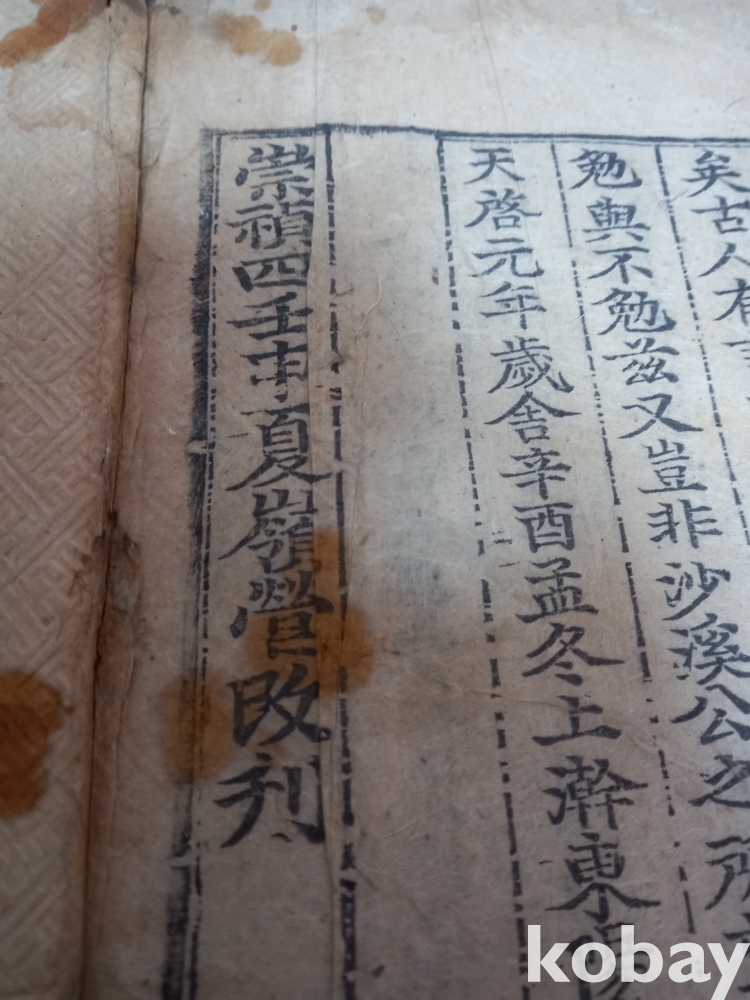 矣古人有
勉與不勉茲又豈非沙溪公之所
天啓元年歲舍辛酉孟冬上澣東陽
崇禎四壬申夏嶺營改刊
kobay